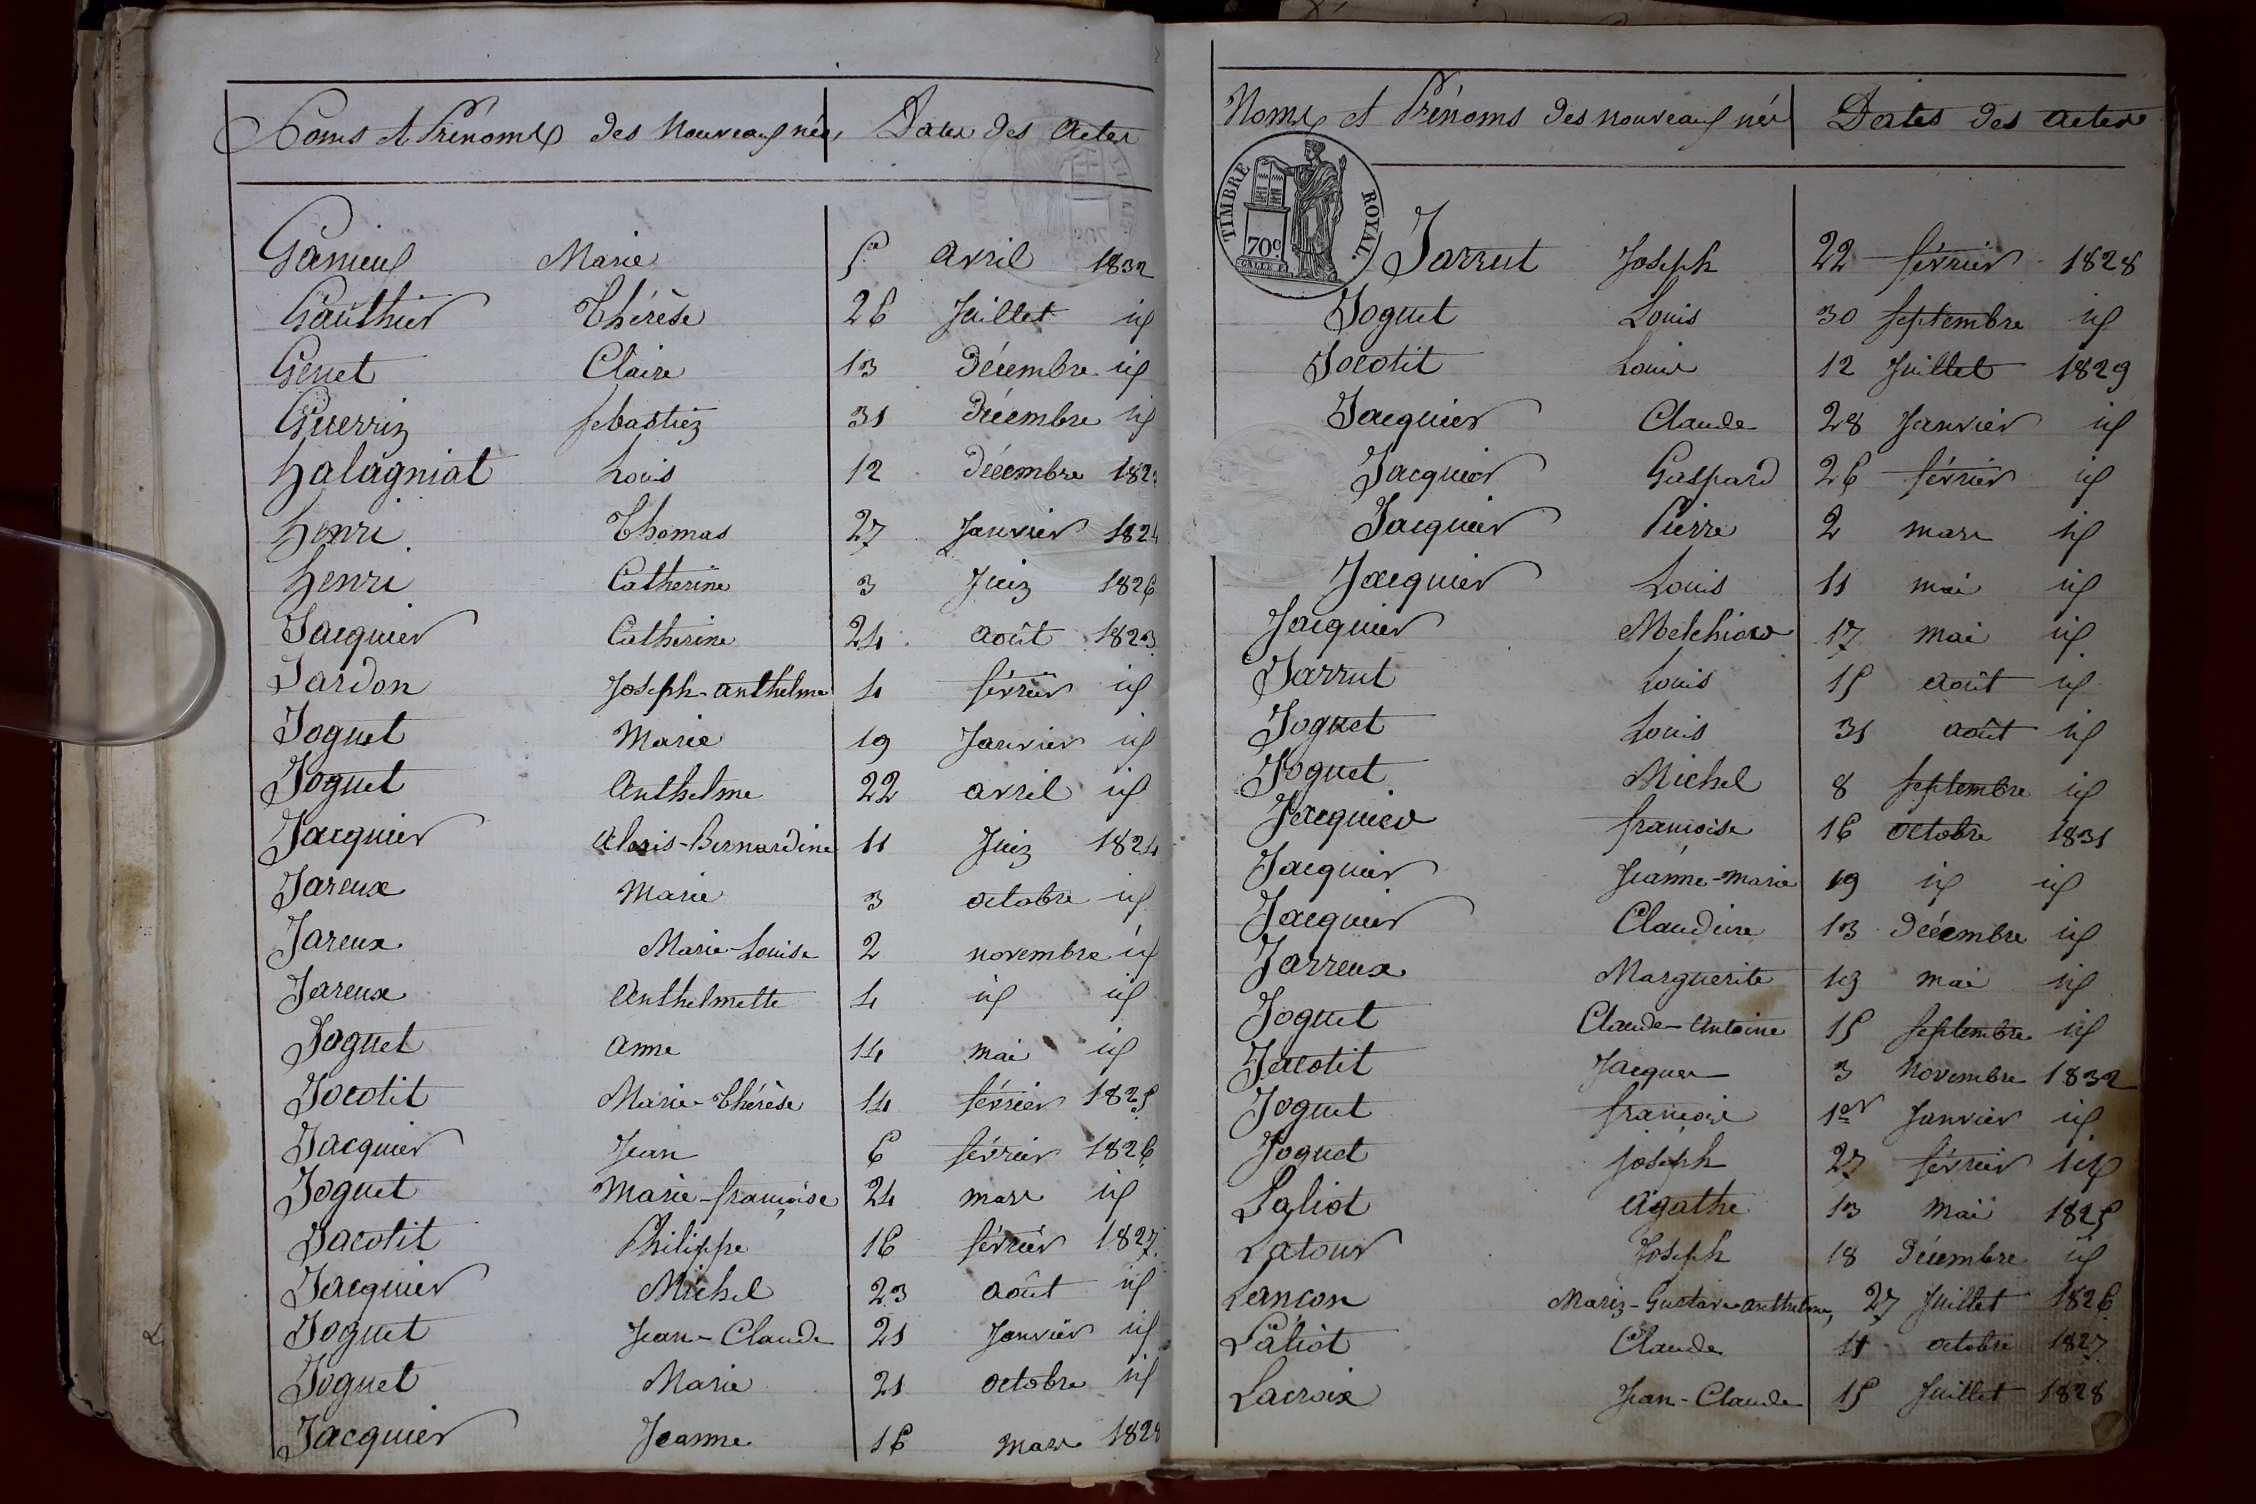 Noms et Prénoms des Nouveaux nés Dates des Actes
Garnieux Marie 5 avril 1832
Gauthier Thérèse 26 Juillet id
Genet Claire 13 Décembre id
Guerrin Sebastien 31 Décembre id
halagniat Louis 12 Décembre 182
henri Thomas 27 Janvier 1824
henri Catherine 3 Juin 1826
Jacquier Catherine 24 août 1823
Jardon Joseph-anthelme 4 février id
Joguet Marie 19 Janvier id
Joguet Anthelme 22 avril id
Jacquier Alexis-Bernardine 11 Juin 1824
Jareux Marie 3 octobre id
Jareux Marie-Louise 2 novembre id
Jareux Anthelmette 4 id id
Joguet Anne 14 mai id
Jocotit Marie-Thérèse 14 février 1825
Jacquier Jean 6 février 1826
Joguet Marie-françoise 24 mars id
Jacotit Philippe 16 février 1827
Jacquier Michel 23 août id
Joguet Jean-Claude 21 Janvier id
Joguet Marie 21 octobre id
Jacquier Jeanne 16 mars 1828
Noms et Prénoms des nouveaux nés Dates des actes
TIMBRE ROYAL.
70c.
Jarrut Joseph 22 février 1828
Joguet Louis 30 septembre id
Jocotit Louis 12 Juillet 1829
Jacquier Claude 28 Janvier id
Jacquier Gaspard 26 février id
Jacquier Pierre 2 mars id
Jacquier Louis 11 mai id
Jacquier Melchior 17 mai id
Jarrut Louis 15 août id
Joguet Louis 31 août id
Joguet Michel 8 septembre id
Jacquier françoise 16 octobre 1831
Jacquier Jeanne-marie 19 id id
Jacquier Claudine 13 Décembre id
Jarreux Marguerite 13 mai id
Joguet Claude-Antoine 15 septembre id
Jacotit Jacques 3 Novembre 1832
Joguet françois 1er Janvier id
Joguet joseph 27 février id
Laliot Agathe 13 mai 1825
Latour Joseph 18 Décembre id
Lançon Marin-Gustave anthelme, 27 Juillet 1826
Laliot Claude 11 octobre 1827
Lacroix Jean-Claude 15 Juillet 1828